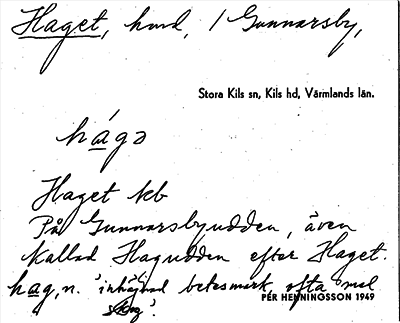 Haget, hmd, / Gunnarsby,
Stora Kils sn, Kils hd, Värmlands län.
hágə
Haget kb
På Gunnarsbyudden, även
kallad Hagudden efter Haget.
hag, n. 'inhägnad betesmark, ofta med
skog'.
PER HENNINGSSON 1949